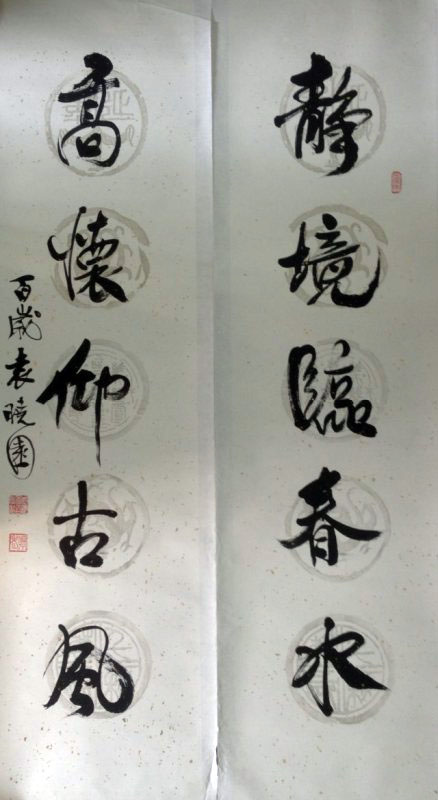 静境臨春水
高懷仰古風
百歲袁曉園